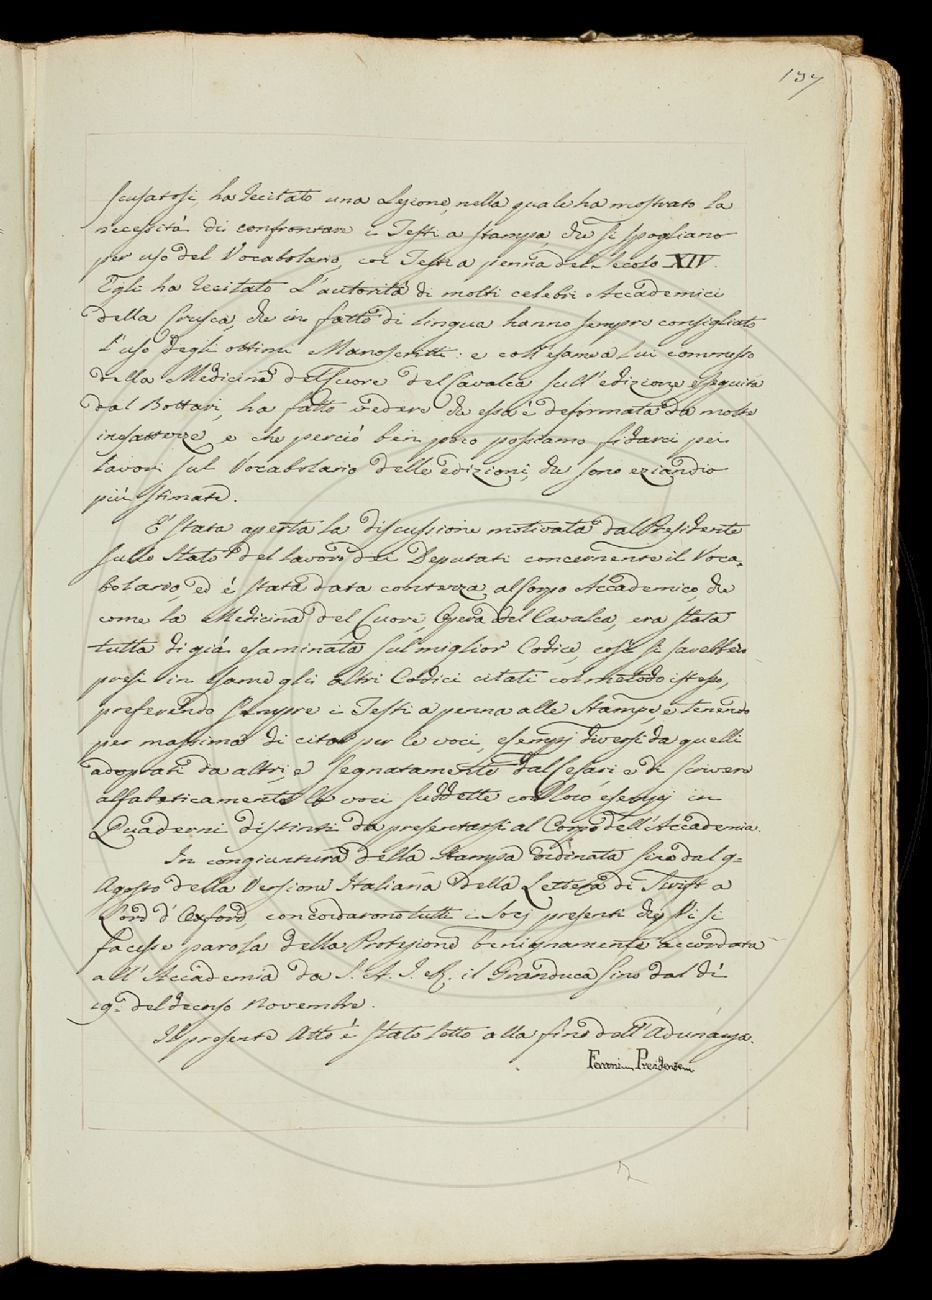 197
scusatosi, ha recitato una Lezione, nella quale ha mostrato la
necessità di confrontare i Testi a stampa, che si spogliano
per uso del Vocabolario, coi Testi a penna del Secolo XIV.
Egli ha recitato l'autorità di molti celebri Accademici
della Crusca, che in fatto di lingua hanno sempre consigliato
l'uso degli ottimi Manoscritti: e coll'esame a lui commesso
della Medicina del Cuore del Cavalca sull'edizione eseguita
dal Bottari, ha fatto vedere che essa è deformata da molte
inesattezze, e che perciò ben poco possiamo fidarci pei
lavori sul Vocabolario delle edizioni, che sono eziandio
più stimate.
E' stata aperta la discussione motivata dal Presidente
sullo Stato del lavoro dei Deputati concernente il Voca-
bolario, ed è stata data contezza al Corpo Accademico, che
come la Medicina del Cuore, Opera del Cavalca, era stata
tutta di già esaminata sul miglior Codice, così si sarebbero
presi in esame gli altri Codici citati col metodo istesso,
preferendo sempre i Testi a penna alle Stampe, e tenendo
per massima di citar per le voci, esempj diversi da quelli
adoprati da altri, e segnatamente dal Cesari, e di scrivere
alfabeticamente le voci suddette con loro esempj in
Quaderni distinti da presentarsi al Corpo dell'Accademia.
In congiuntura della Stampa ordinata sino dal 9.
Agosto della Versione Italiana della Lettera di Swift a
Lord d'Oxford, concordarono tutti i Socj presenti che vi si
facesse parola della Protezione benignamente accordata
all'Accademia da S. A. I. R. il Granduca sino dal dì
19. del decorso Novembre.
Il presente Atto è stato letto alla fine dell'Adunanza.
Ferroni Presidente